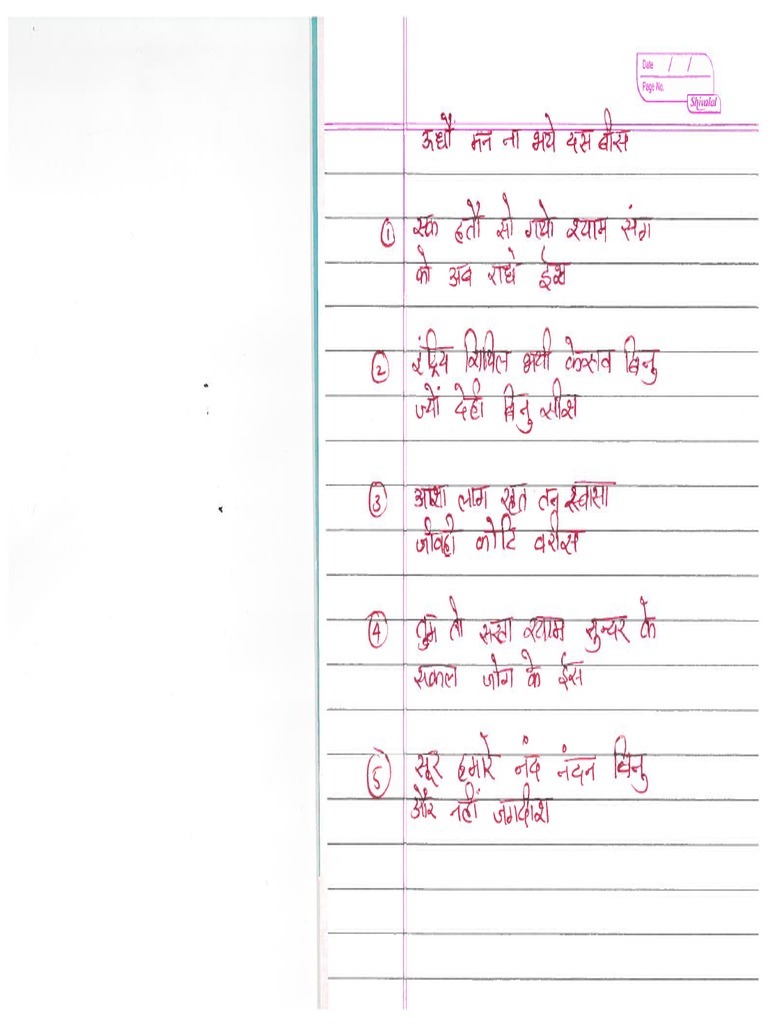 Date / /
Page No.
Shivalal
उधौ मन ना भये दस बीस
① एक हतौ सो गयो श्याम संग
को अब राधे ईश
② इंद्रिय शिथिल भयी केसव बिनु
ज्यों देही बिनु सीश
③ आशा लाग रहत तन स्वासा
जीवही कोटि वरीस
④ तुम तो सखा श्याम सुन्दर के
सकल जोग के ईस
⑤ सूर हमारे नंद नंदन बिनु
और नहीं जगदीश